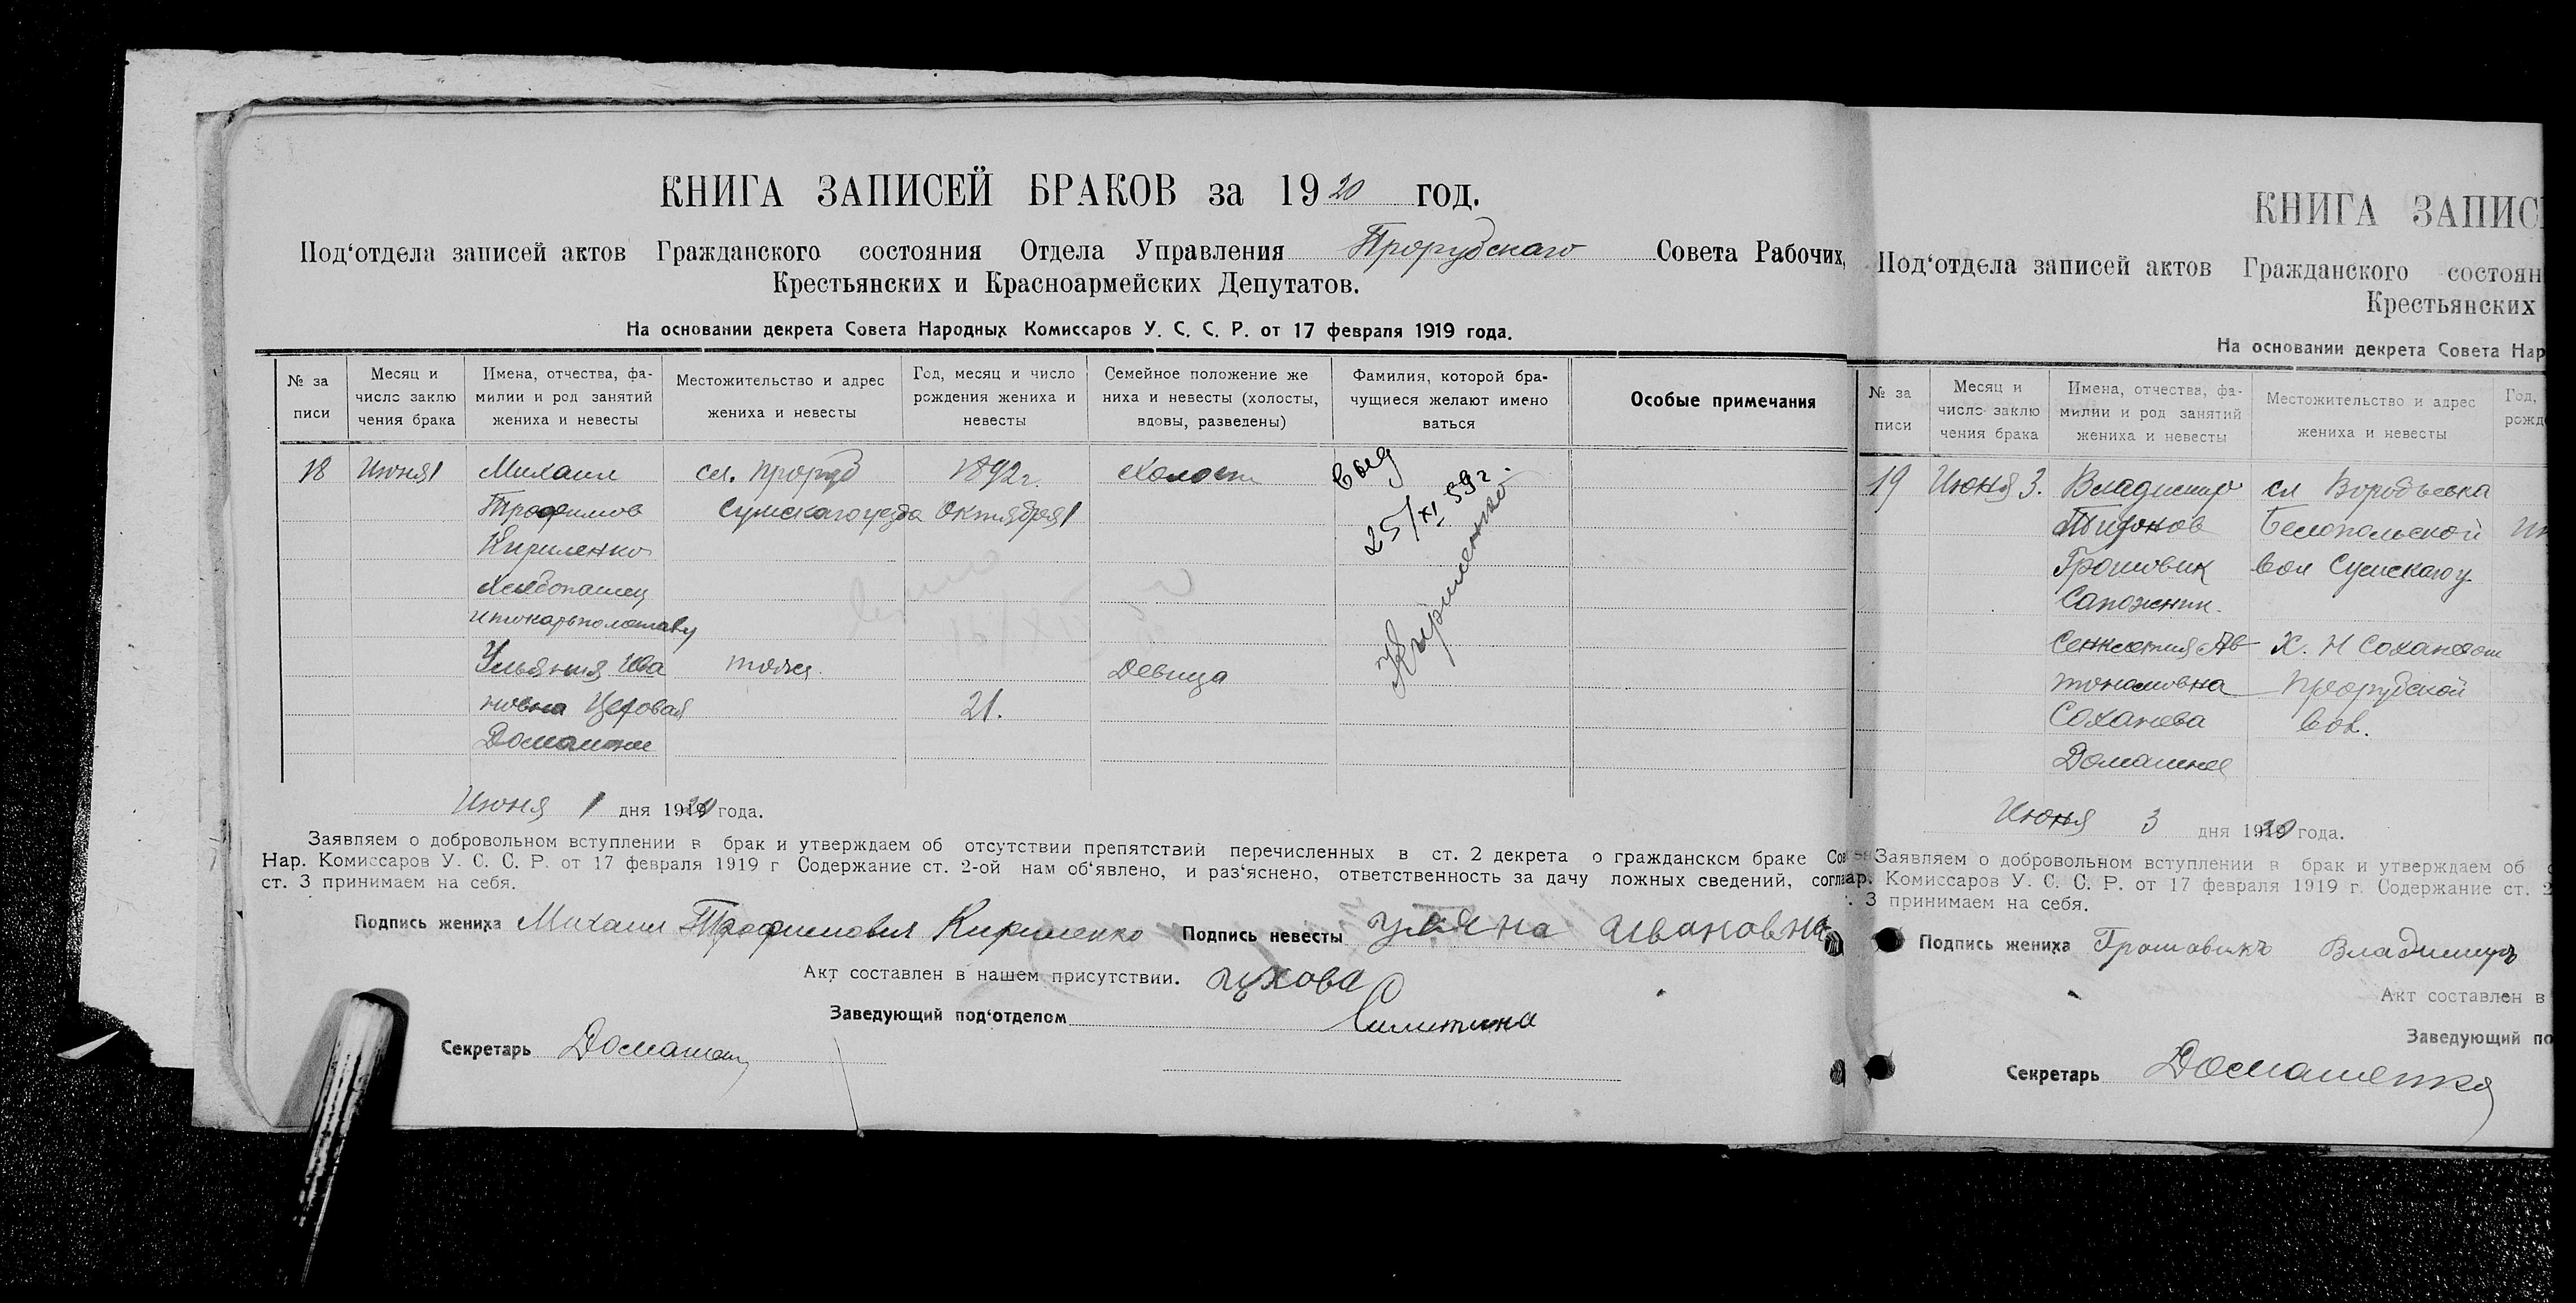 КНИГА ЗАПИСЕЙ БРАКОВ за 1920 год.
Под‘отдела записей актов Гражданского состояния Отдела Управления Прорубскаго Совета Рабочих,
Крестьянских и Красноармейских Депутатов.
На основании декрета Совета Народных Комиссаров У. С. С. Р. от 17 февраля 1919 года.
№ за
писи
Месяц и
число заклю
чения брака
Имена, отчества, фа-
милии и род занятий
жениха и невесты
Местожительство и адрес
жениха и невесты
Год, месяц и число
рождения жениха и
невесты
Семейное положение же
ниха и невесты (холосты,
вдовы, разведены)
Фамилия, которой бра-
чущиеся желают имено
ваться
Особые примечания
18
Июня 1
Михаил
Трофимов
Кириленко
Хлебопашец
сл. Проруб
Сумскаго уезда
1892 г.
Октября 1
Холост
выд
25/XI 59 г.
Кириленко
Ульяния Ива
новна
Домашн
тоже
21.
Девица
Июня 1 дня 1920 года.
Заявляем о добровольном вступлении в брак и утверждаем об отсутствии препятствий перечисленных в ст. 2 декрета о гражданском браке Сов
Нар. Комиссаров У. С. С. Р. от 17 февраля 1919 г Содержание ст. 2-ой нам об‘явлено, и раз‘яснено, ответственность за дачу ложных сведений, согла
ст. 3 принимаем на себя.
Подпись жениха Михаил Трофимович Кириленко Подпись невесты Уляна Ивановна
Акт составлен в нашем присутствии.
Заведующий под‘отделом
Секретарь
КНИГА ЗАПИС
Под‘отдела записей актов Гражданского состоян
Крестьянских
На основании декрета Совета Нар
№ за
писи
Месяц и
число заклю
чения брака
Имена, отчества, фа-
милии и род занятий
жениха и невесты
Местожительство и адрес
жениха и невесты
Год,
рожд
19
Июня 3.
Владимир
Тихонов
Грошовик
Сапожник.
сл Воробьевка
Белопольской
вол Сумскаго у.
Соханева
Домашнее
Х. Н Соханевом
Прорубской
вол.
Июня 3 дня 1920 года.
Заявляем о добровольном вступлении в брак и утверждаем об
ар. Комиссаров У. С. С. Р. от 17 февраля 1919 г. Содержание ст. 2
. 3 принимаем на себя.
Подпись жениха Грошовикъ Владимиръ
Акт составлен в
Заведующий по
Секретарь Домашенко